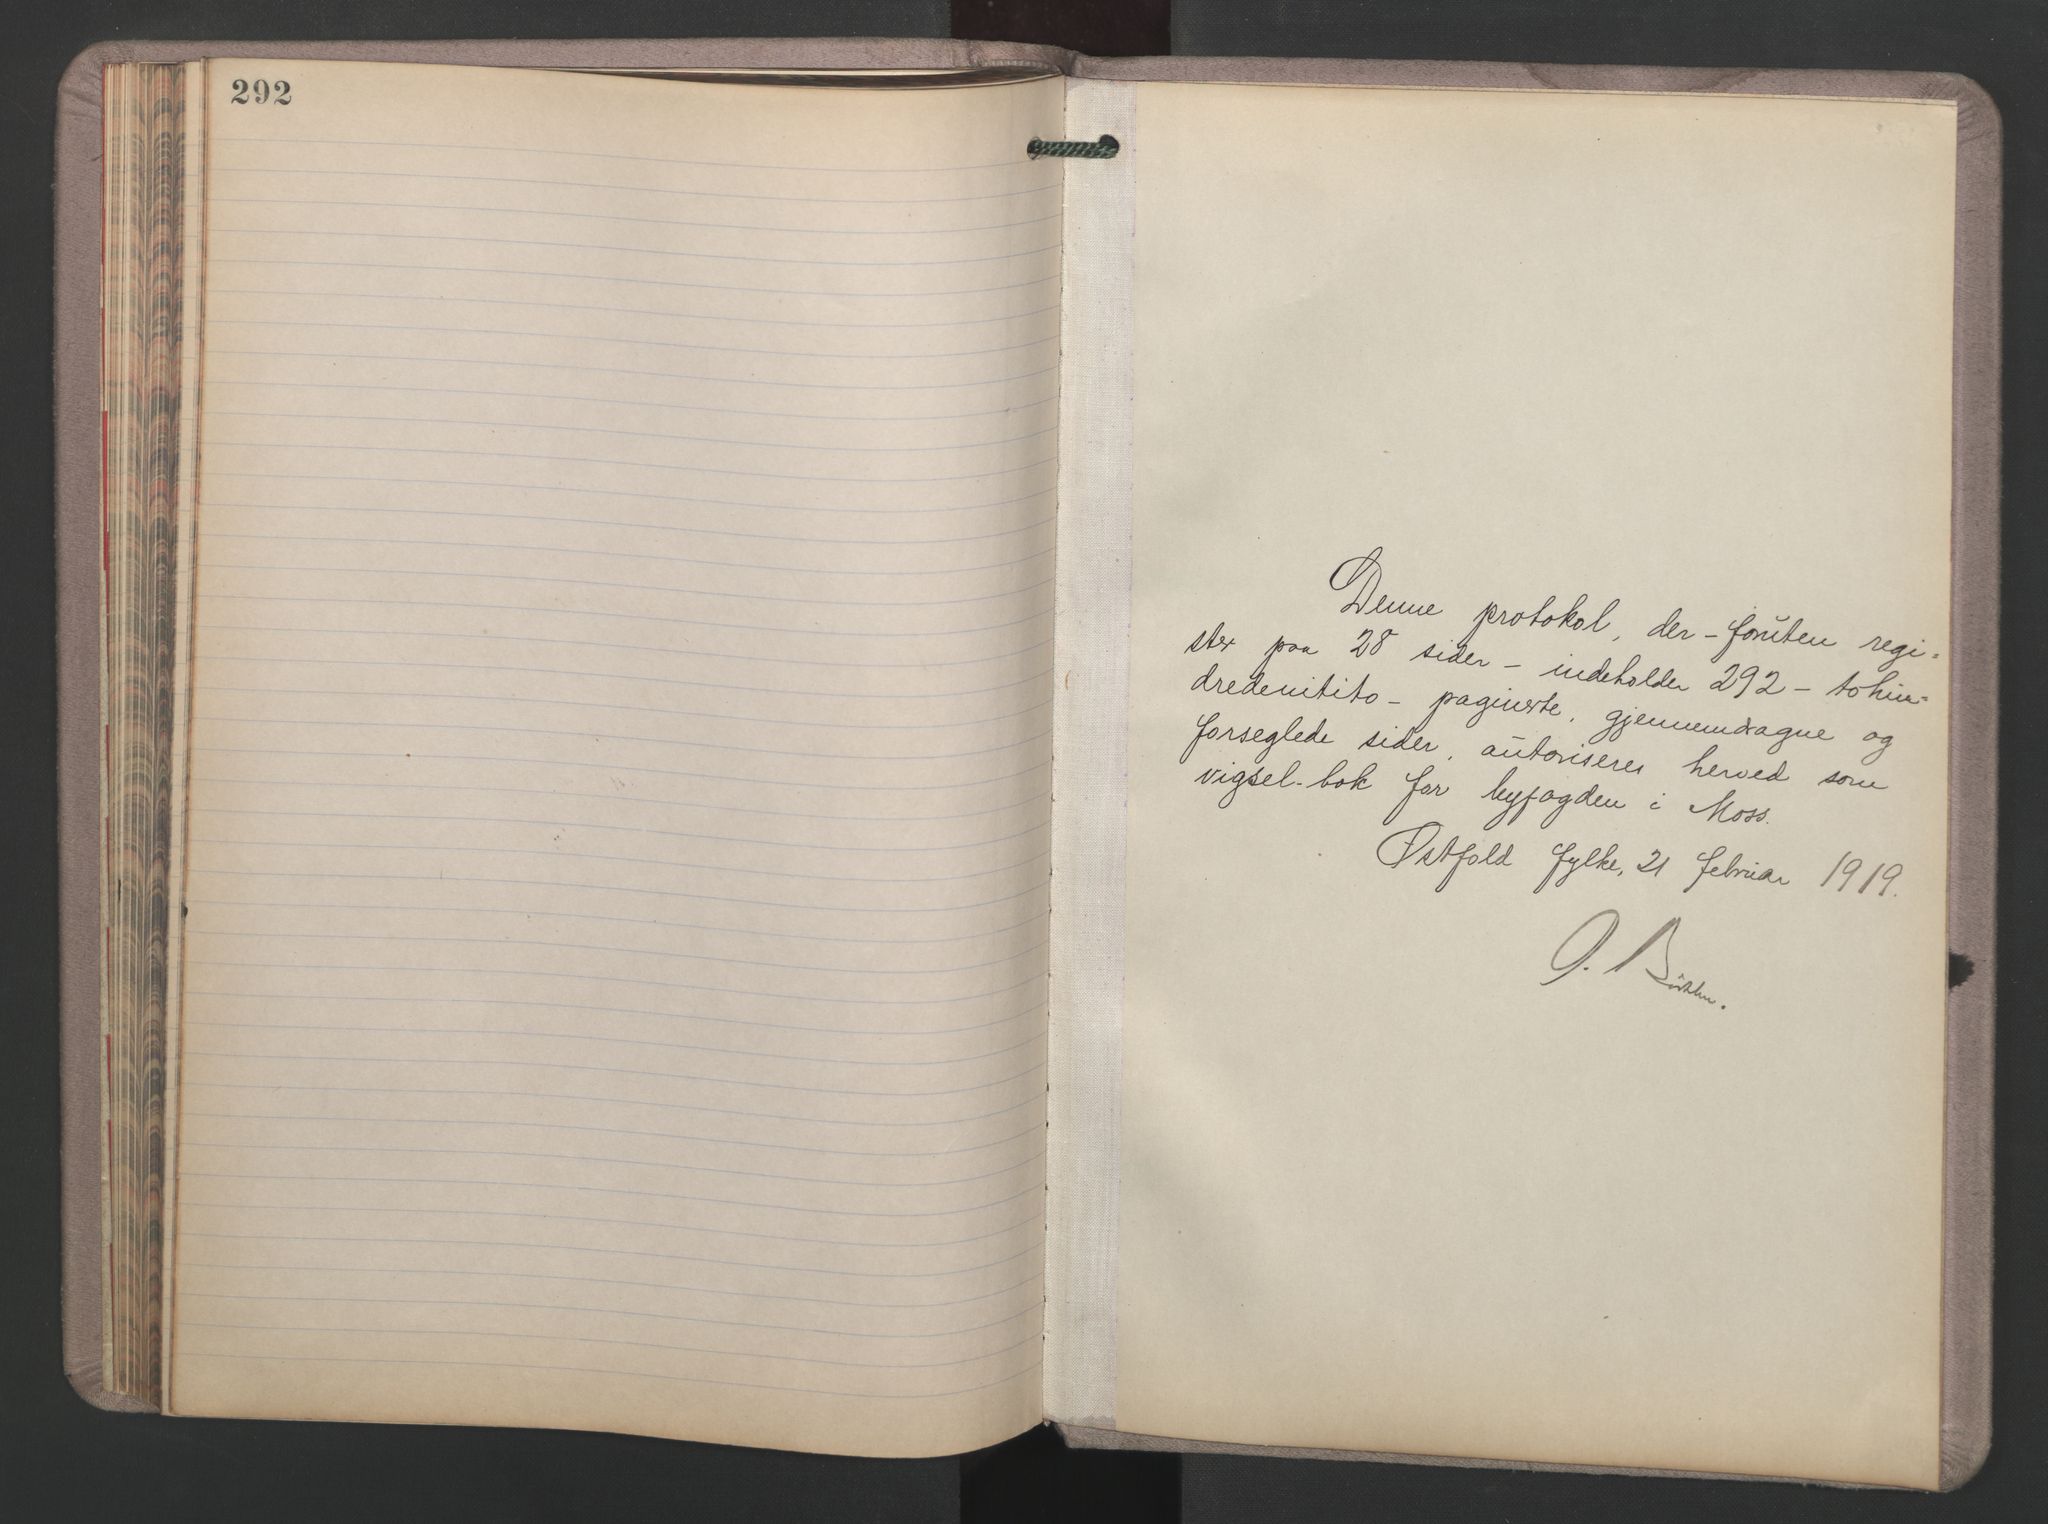 292
Denne protokol, der – foruten regi-
ster paa 28 sider – indeholder 292 – tohun-
dredenitito – paginerte, gjennemdragne og
forseglede sider, autoriseres herved som
vigsel-bok for byfogden i Moss.
Østfold fylke, 21 februar 1919.
O.